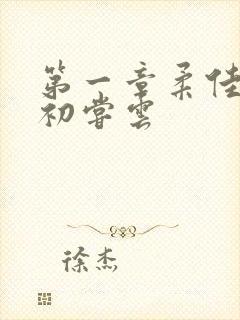 第一章柔佳
初嘗雲
徐杰